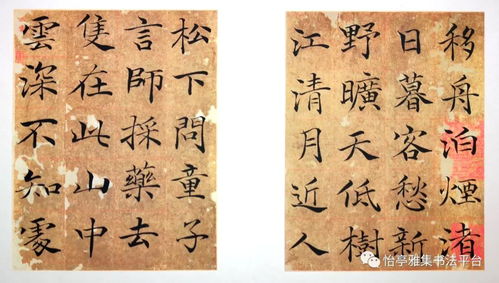 移舟泊煙渚
日暮客愁新
野曠天低樹
江清月近人
松下問童子
言師採藥去
隻在此山中
雲深不知處
怡亭雅集书法平台